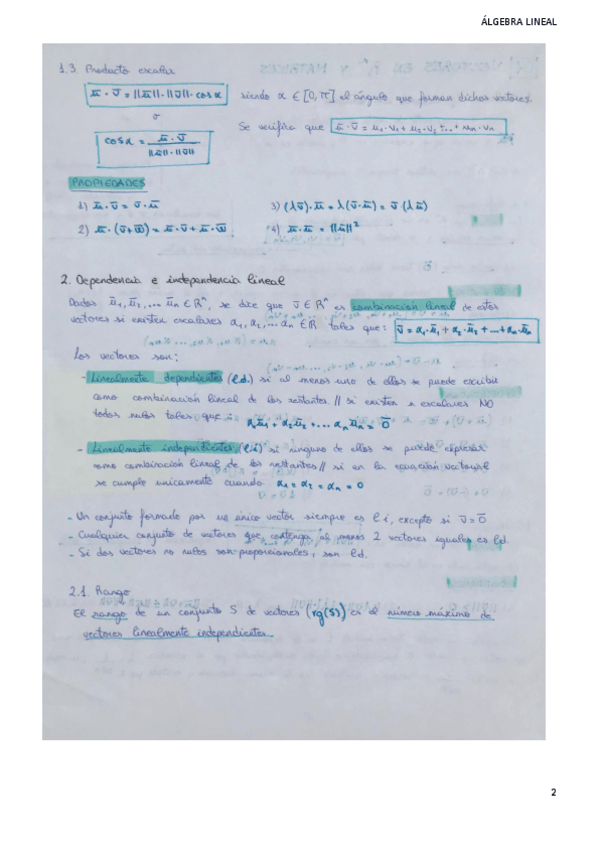 ÁLGEBRA LINEAL
1.3. Producto escalar
ū · v̄ = ||ū|| · ||v̄|| · cos α siendo α ∈ [0, π] el ángulo que forman dichos vectores.
o
cos α = ū · v̄ / ||ū|| · ||v̄|| Se verifica que ū · v̄ = u₁ · v₁ + u₂ · v₂ + ... + uₙ · vₙ
PROPIEDADES
1) ū · v̄ = v̄ · ū 3) (λū) · v̄ = λ(ū · v̄) = v̄ · (λū)
2) ū · (v̄ + w̄) = ū · v̄ + ū · w̄ 4) ū · ū = ||ū||²
2. Dependencia e independencia lineal
Dados ū₁, ū₂, ... ūₙ ∈ Rⁿ, se dice que v̄ ∈ Rⁿ es combinación lineal de estos
vectores si existen escalares α₁, α₂, ... αₙ ∈ R tales que: v̄ = α₁ · ū₁ + α₂ · ū₂ + ... + αₙ · ūₙ
Los vectores son:
- Linealmente dependientes (l.d.) si al menos uno de ellos se puede escribir
como combinación lineal de los restantes // si existen n escalares NO
todos nulos tales que: α₁ū₁ + α₂ū₂ + ... αₙūₙ = 0̄
- Linealmente independientes (l.i) si ninguno de ellos se puede expresar
como combinación lineal de los restantes // si en la ecuación vectorial
se cumple unicamente cuando α₁ = α₂ = αₙ = 0
- Un conjunto formado por un único vector siempre es l.i, excepto si v̄ = 0̄
- Cualquier conjunto de vectores que contenga al menos 2 vectores iguales es l.d.
- Si dos vectores no nulos son proporcionales, son l.d.
2.1. Rango
El rango de un conjunto S de vectores (rg(S)) es el número máximo de
vectores linealmente independientes.
2